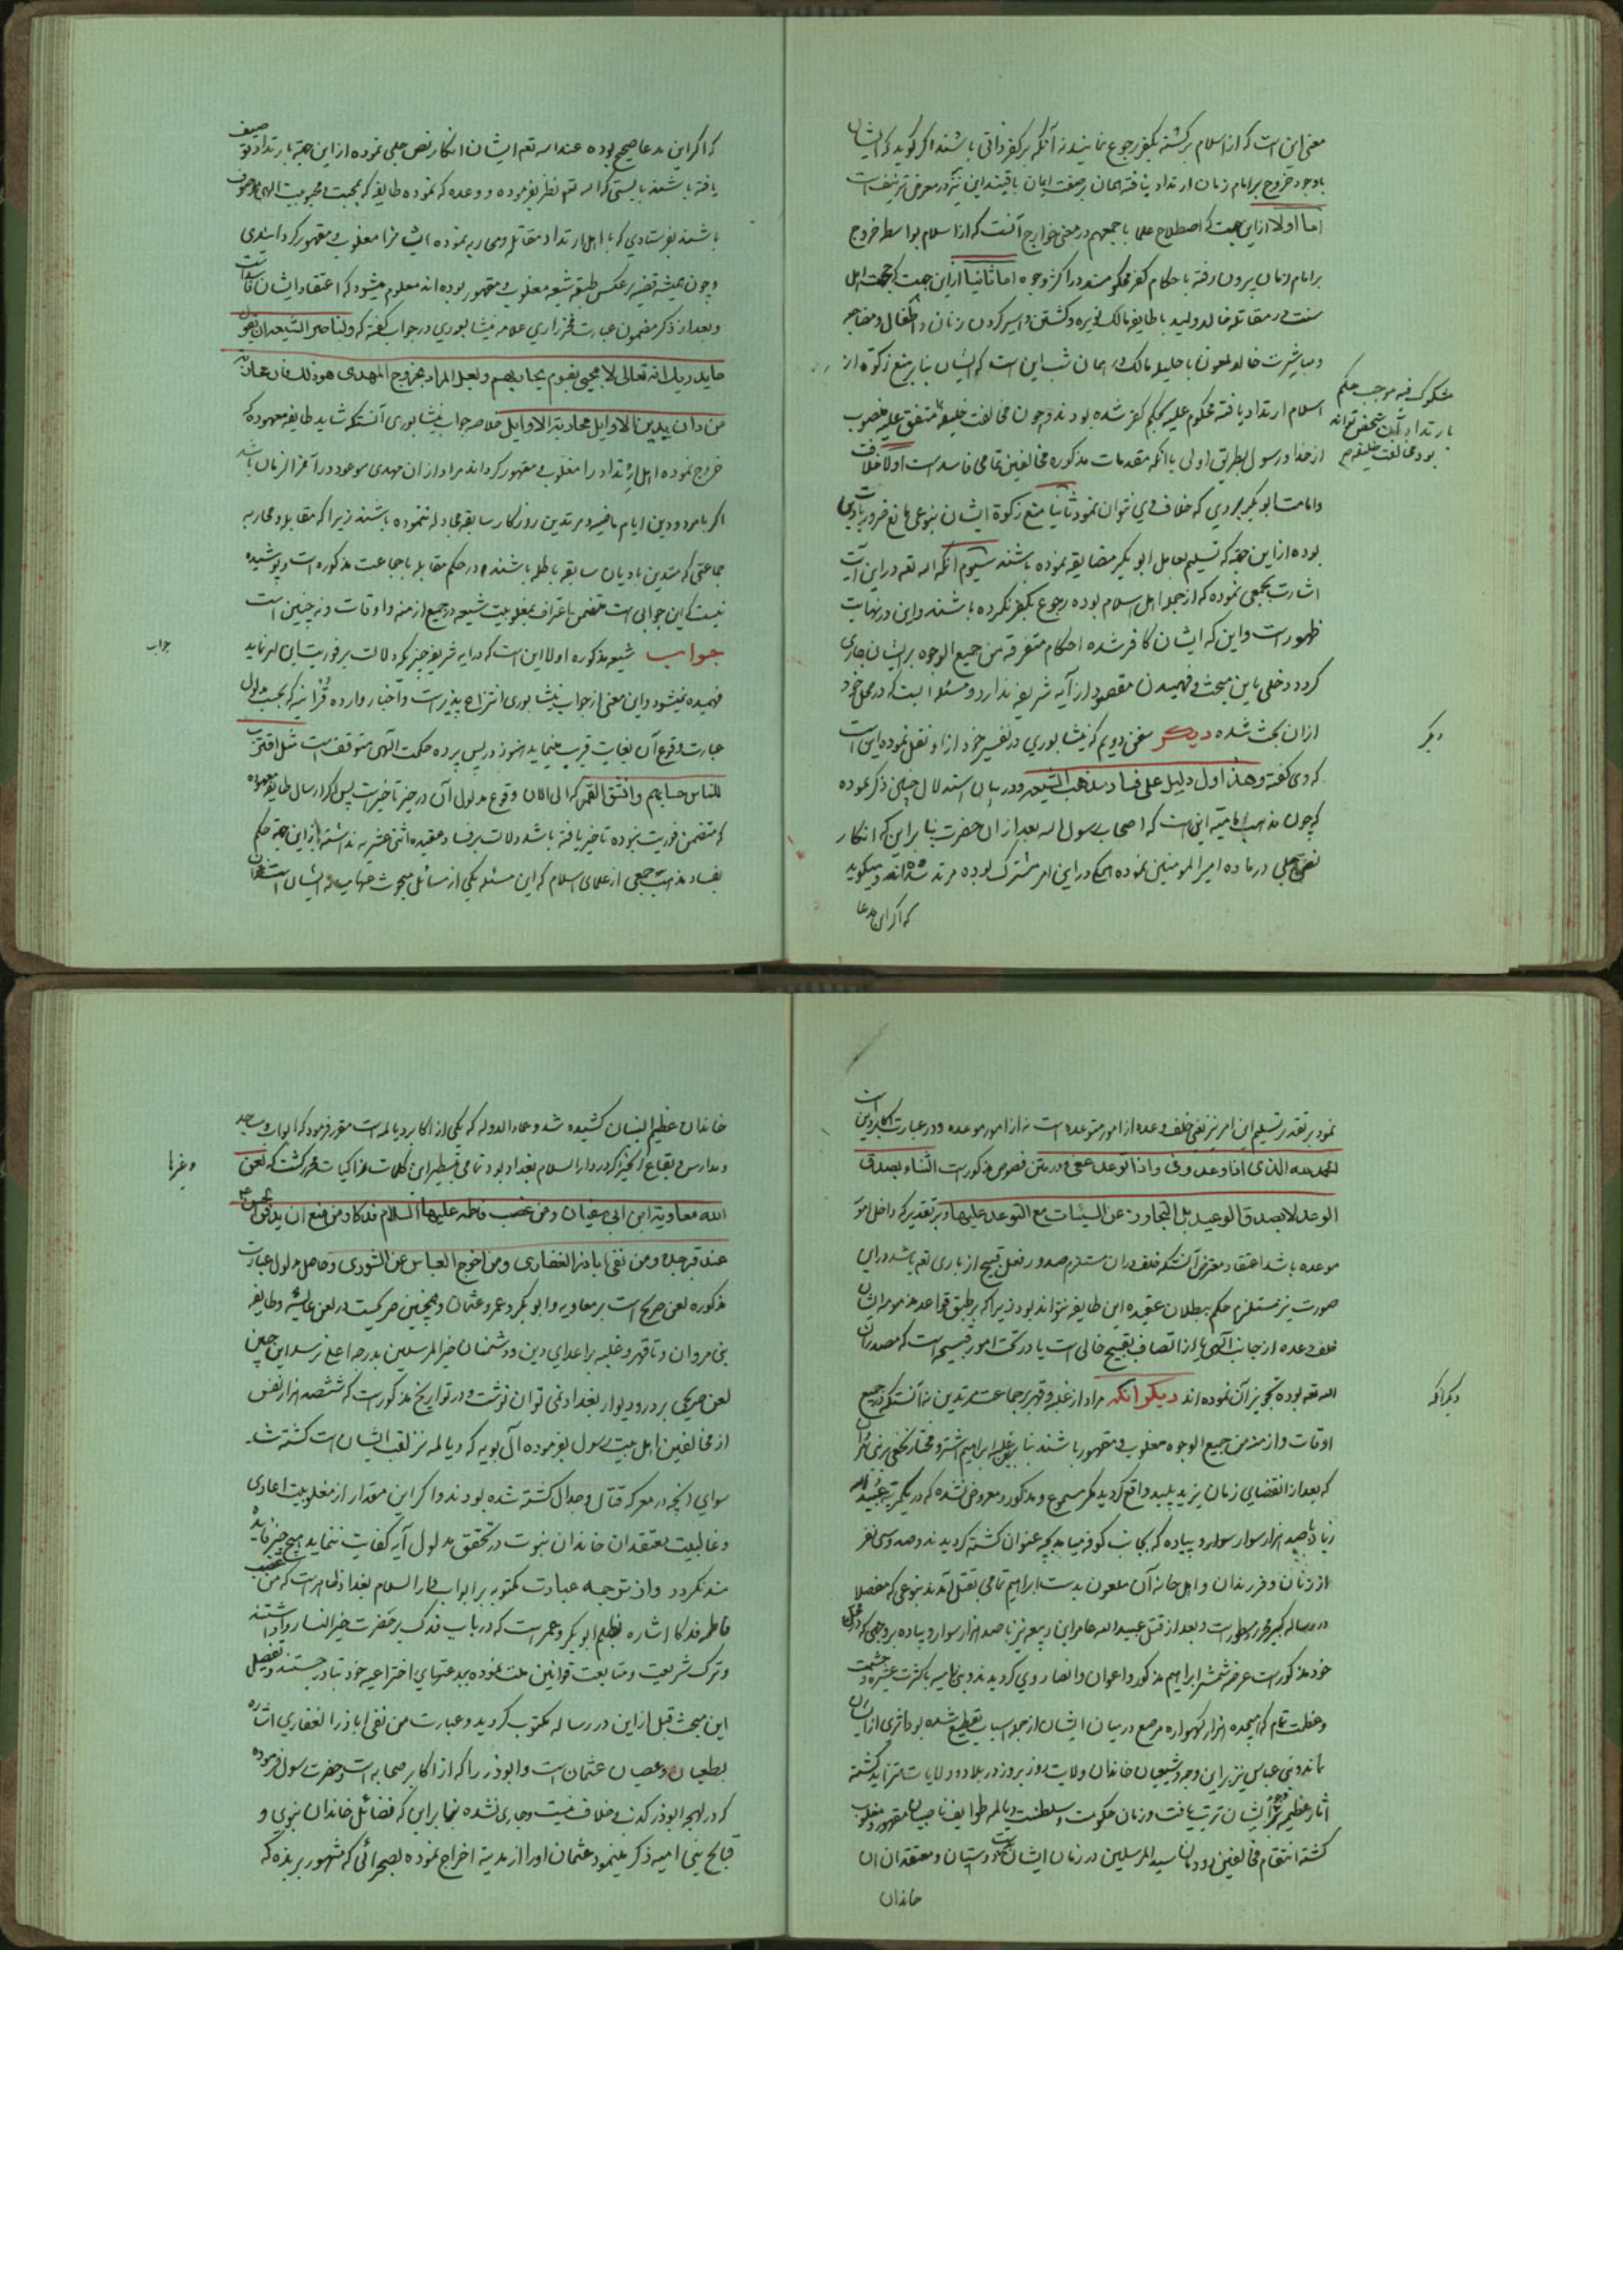 معنی این است که از اسلام برگشته بکفر رجوع نمایند نه آنکه بر کفر ذاتی باشند اگر گوید که ایشان
باوجود خروج بر امام زمان ارتداد نیافته همان بر صفت ایمان باقیند این نیز در معرض تزییف است
اما اولا از این جهت که اصطلاح علما باجمعهم در معنی خوارج آنست که از اسلام بواسطه خروج
بر امام زمان بیرون رفته باحکام کفر محکومند در اکثر وجوه اما ثانیا از این جهت که حجت اهل
سنت در مقاتله خالد ولید با طایفه مالک نویره و کشتن و اسیر کردن زنان و اطفال و مضاجعه
و مباشرت خالد ملعون با حلیله مالک در همان شب این است که ایشان بنابر منع زکوة از
اسلام ارتداد یافته محکوم علیه بحکم کفر شده بودند و چون مخالفت خلیفه متفق علیه منصوب
از خدا و رسول بطریق اولی با آنکه مقدمات مذکوره مخالفین تمامی فاسد است اولا خلافت
و امامت ابو بکر بمجردی که خلاف وی نتوان نمود ثانیا منع زکوة ایشان بنوعی مانع ضروریات دین
بوده از این جهة که تسلیم بعامل ابو بکر مضایقه نموده باشند سیوم آنکه الله تعه در این آیت
اشارت بجمعی نموده که از جمله اهل اسلام بوده رجوع بکفر نکرده باشند و این در نهایت
ظهور است و این که ایشان کافر شده احکام متفرقه من جمیع الوجوه بر ایشان جاری
گردد دخلی باین مبحث و فهمیدن مقصود از آیه شریفه ندارد و مسئله ایست که در محل خود
از ان بحث شده دیگر سخن دویم که نیشابوری در تفسیر خود از او نقل نموده این است
که وی گفته وهذا اول دلیل علی فساد مذهب الشیعه و در بیان استدلال چنین ذکر نموده
که چون مذهب امامیه این است که اصحاب رسول الله بعد از ان حضرت بنابر این که انکار
نص جلی در ماده امیر المومنین نموده همگی در این امر مشترک بوده مرتد شده‌اند و میگوید
که اگر این مدعا
مشکوک فیه موجب حکم
بارتداد آن شخص تواند
بود مخالفت خلیفه
دیگر
که اگر این مدعا صحیح بوده عند الله تعه ایشان انکار نص جلی نموده از این جهة بارتداد توصیف
یافته باشند بایستی که الله تعه نظر بفرموده و وعده که نموده طایفه که بمحبت و محبوبیت الهی موصوف
باشند بفرستادی که با اهل ارتداد مقاتله و محاربه نموده ایشانرا مغلوب و مقهور گردانیدی
و چون همیشه قضیه بر عکس طبقه شیعه مغلوب و مقهور بوده‌اند معلوم میشود که اعتقاد ایشان فاسد است
و بعد از ذکر مضمون عبارت فخر رازی علامه نیشابوری در جواب گفته که ولناصر الشیعه ان یقول
ما یدریک انه تعالی لا یجیئ بقوم یحاربهم ولعل المراد بخروج المهدی هو ذلک فان محاربة
من دان بدین الاوایل محاربة الاوایل خلاصه جواب نیشابوری آنستکه شاید طایفه معهوده که
خروج نموده اهل ارتداد را مغلوب و مقهور گرداند مراد از ان مهدی موعود در آخر الزمان باشد
اگر با مردودین ایام ماضیه و مرتدین روزگار سابقه مجادله ننموده باشند زیرا که مقابله و محاربه
جماعتی که متدین بادیان سابقه باطله باشند در حکم مقابله با جماعت مذکوره است و پوشیده
نیست که این جوابی است متضمن باعتراف بمغلوبیت شیعه در جمیع ازمنه و اوقات و نه چنین است
جواب شیعه مذکوره اولا این است که در آیه شریفه چیزیکه دلالت بر فوریت این امر نماید
فهمیده نمیشود و این معنی از جواب نیشابوری انتزاع پذیر است و اخبار وارده قرآنیه که بحسب مدلول
عبارت وقوع آن بغایت قریب مینماید هنوز در پس پرده حکمت الهی متوقفست مثل اقترب
للناس حسابهم وانشق القمر که الی الان وقوع مدلول آن در حیز تاخیر است پس اگر ارسال طایفه معهوده
که متضمن فوریت نبوده تاخیر یافته باشد دلالت بر فساد عقیده اثنی عشریه نداشته از این جهة حکم
بفساد مذهب جمعی از علمای اسلام که این مسئله یکی از مسائل مبحوث عنها ایشان است
جواب
نمود بر تقدیر تسلیم این امر نیز نفی خلف وعده از امور متوعده است نه از امور موعده و در عبارت اکابر دین است
الحمد لله الذی اذا وعد وفی واذا توعد عفی و در متن فصوص مذکور است الثناء بصدق
الوعد لا بصدق الوعید بل التجاوز عن السیئات مع التوعد علیها و بر تقدیر که داخل امور
موعده باشد اعتقاد معترض آنستکه خلف در ان مستلزم صدور فعل قبیح از باری تعه باشد در این
صورت نیز مستلزم حکم ببطلان عقیده این طایفه نتواند بود زیرا که بر طبق قواعد مذمومه ایشان
خلف وعده از جانب الهی یا از اتصاف بقبیح خالی است یا در تحت امور قبیحه است که مصدر آن
الله تعه بوده تجویز آن نموده‌اند دیگر آنکه مراد از غلبه و قهر بر جماعت مرتدین نه آنستکه در جمیع
اوقات و ازمنه من جمیع الوجوه مغلوب و مقهور باشند بنابر غلبه ابراهیم اشتر و مختار نخعی بر بنی مروان
که بعد از انقضای زمان یزید پلید واقع گردید مگر مسموع و مذکور و معروض نشده که در یکمرتبه عبید الله
زیاد باصد هزار سوار و پیاده که بجانب کوفه میامد بچه عنوان کشته گردیدند و صد و سی نفر
از زنان و فرزندان و اهل خانه آن ملعون بدست ابراهیم تمامی بقتل آمدند بنوعی که مفصلا
در رساله کبیر محرر و مسطور است و بعد از قتل عبید الله عامر ابن ربیعه نیز باصد هزار سوار و پیاده بر وجهی که در محل
خود مذکور است عرضه شمشیر ابراهیم مذکور و اعوان و انصار وی گردیدند و بنی امیه با کثرت عشیره و حشمت
و عظمت تمام که هیجده هزار گهواره مرصع در میان ایشان از جمله اسباب تقطیع شده بود اثری از ایشان
نماند و بنی عباس نیز بر این وجه و شیعیان خاندان ولایت روز بروز در بلاد و ولایات متزاید گشته
آثار عظیمه بر وجود ایشان ترتب یافت و زمان حکومت و سلطنت دیالمه طوایف ناصبیان مقهور و مغلوب
گشته انتقام مخالفین دودمان سید المرسلین در زمان ایشان بدوستان و معتقدان ان
خاندان
دیگر آنکه
خاندان عظیم الشان کشیده شد و عماد الدوله که یکی از اکابر دیالمه است مقرر فرمود که ابواب و مساجد
و مدارس و بقاع آنچه در دار السلام بغداد بود تمامی بتسطیر این کلمات محرر گشت که لعن
الله معاویة ابن ابی سفیان ومن غصب فاطمه علیها السلام فدکا ومن منع ان یدفن الحسن ع
عند قبر جده ومن نفی اباذر الغفاری ومن اخرج العباس عن الشوری و حاصل مدلول عبارت
مذکوره لعن صریح است بر معاویه و ابو بکر و عمر و عثمان و همچنین صریحست در لعن عایشه و طایفه
بنی مروان و تا قهر و غلبه بر اعدای دین و دشمنان خیر المرسلین بدرجه اعلی نرسد این چنین
لعن صریحی بر در و دیوار بغداد نمی توان نوشت و در تواریخ مذکور است که ششصد هزار نفس
از مخالفین اهل بیت رسول بفرموده آل بویه که دیالمه نیز لقب ایشان است کشته شد
سوای آنچه در معرکه قتال و جدال کشته شده بودند و اگر این مقدار از مغلوبیت اعادی
و غالبیت معتقدان خاندان نبوت در تحقق مدلول آیه کفایت ننماید هیچ چیز فایده
مند نگردد و از توجه عبارت مکتوبه بر ابواب دار السلام بغداد ظاهر است که من غصب
فاطمه فدکا اشاره بظلم ابو بکر و عمر است که در باب فدک بر حضرت خیر النسا روا داشتند
و ترک شریعت و متابعت قوانین ملت نموده ببدعتهای اختراعیه خود تبادر جستند و تفصیل
این مبحث قبل از این در رساله مکتوب گردید و عبارت من نفی اباذر الغفاری اشاره
بطغیان و عصیان عثمان است و ابوذر را که از اکابر صحابه است و حضرت رسول فرموده
که در لهجه ابوذر کذب و خلاف نیست و جاری نشده بنابر این که فضائل خاندان نبوی و
قبایح بنی امیه ذکر مینمود عثمان اورا از مدینه اخراج نموده بصحرائی که مشهور بربذه که
وغیرها